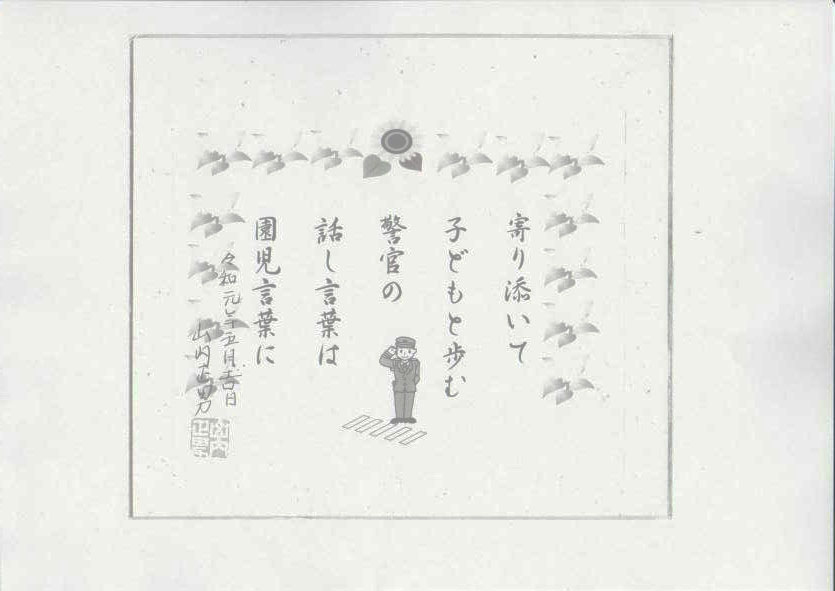 寄り添いて
子どもと歩む
警官の
話し言葉は
園児言葉に
令和元年五月吉日
山内正男